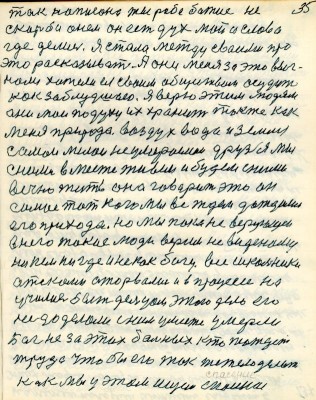 35
так написано ты рабе божие не
скорби о нем он есть дух мой и слова
где делись. Я стала между своими про
это рассказывать. А они меня за это выг-
нали хотели ей своим обществом осудить
как заблудшего. Я верю этим людям
они мои подруги их хранит также как
меня природа воздух вода и земля
самой милой неумираемой друзья мы
с ними вместе жили и будем с ними
вечно жить она говорит это он
самое тот кого мы все ждем дождались
его прихода. Но мы пока не верующие
в него такое люди верой не виденому
ни кем ни где и не как богу, все школьники
от школы оторвались и в процессе на
учились быть дельцом этого дела его
не доделали с ним умете умерли
Бог не за этих больных кто тождет
труда что бы его так тяжело делать
как мы у этом ищем спасения